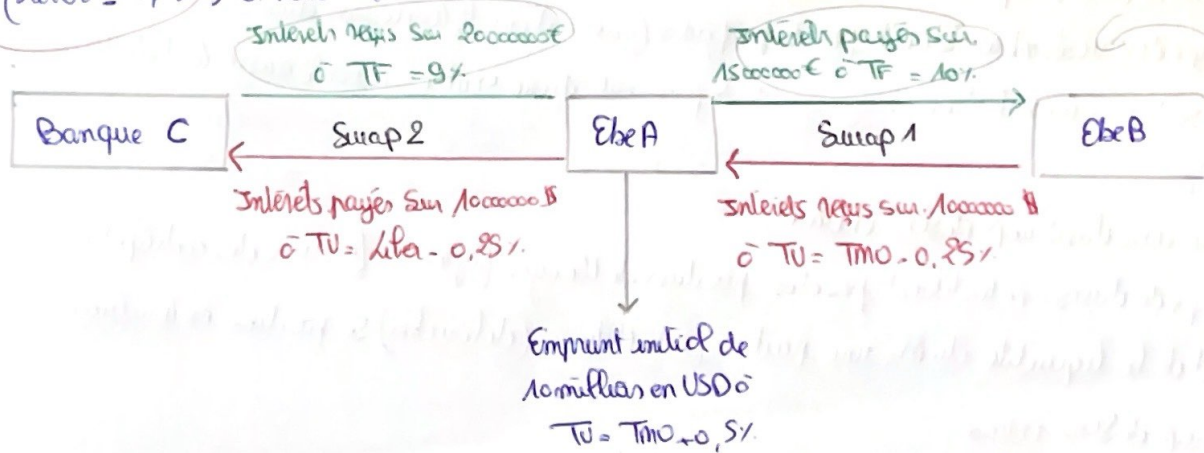 Intérêts reçus sur 20000000€
à TF = 9%
Intérêts payés sur
15000000€ à TF = 10%
Banque C
Swap 2
Ebe A
Swap 1
Ebe B
Intérêts payés sur 10000000 $
à TV = Libor - 0,25%
Intérêts reçus sur 10000000 $
à TV = TMO - 0,25%
Emprunt initial de
10 millions en USD à
TV = TMO + 0,5%